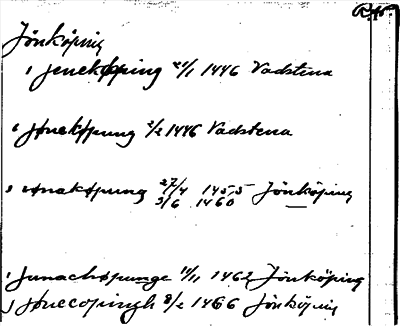 Jönköping
1 jenekøping 21/1 1446 Vadstena
jønekøpung 2/2 1446 Vadstena
ionakøpung 27/4 1455 Jönköping
3/6 1460
1 junachøpunge 11/11 1462 Jönköping
jønecopingh 8/2 1466 Jönköping